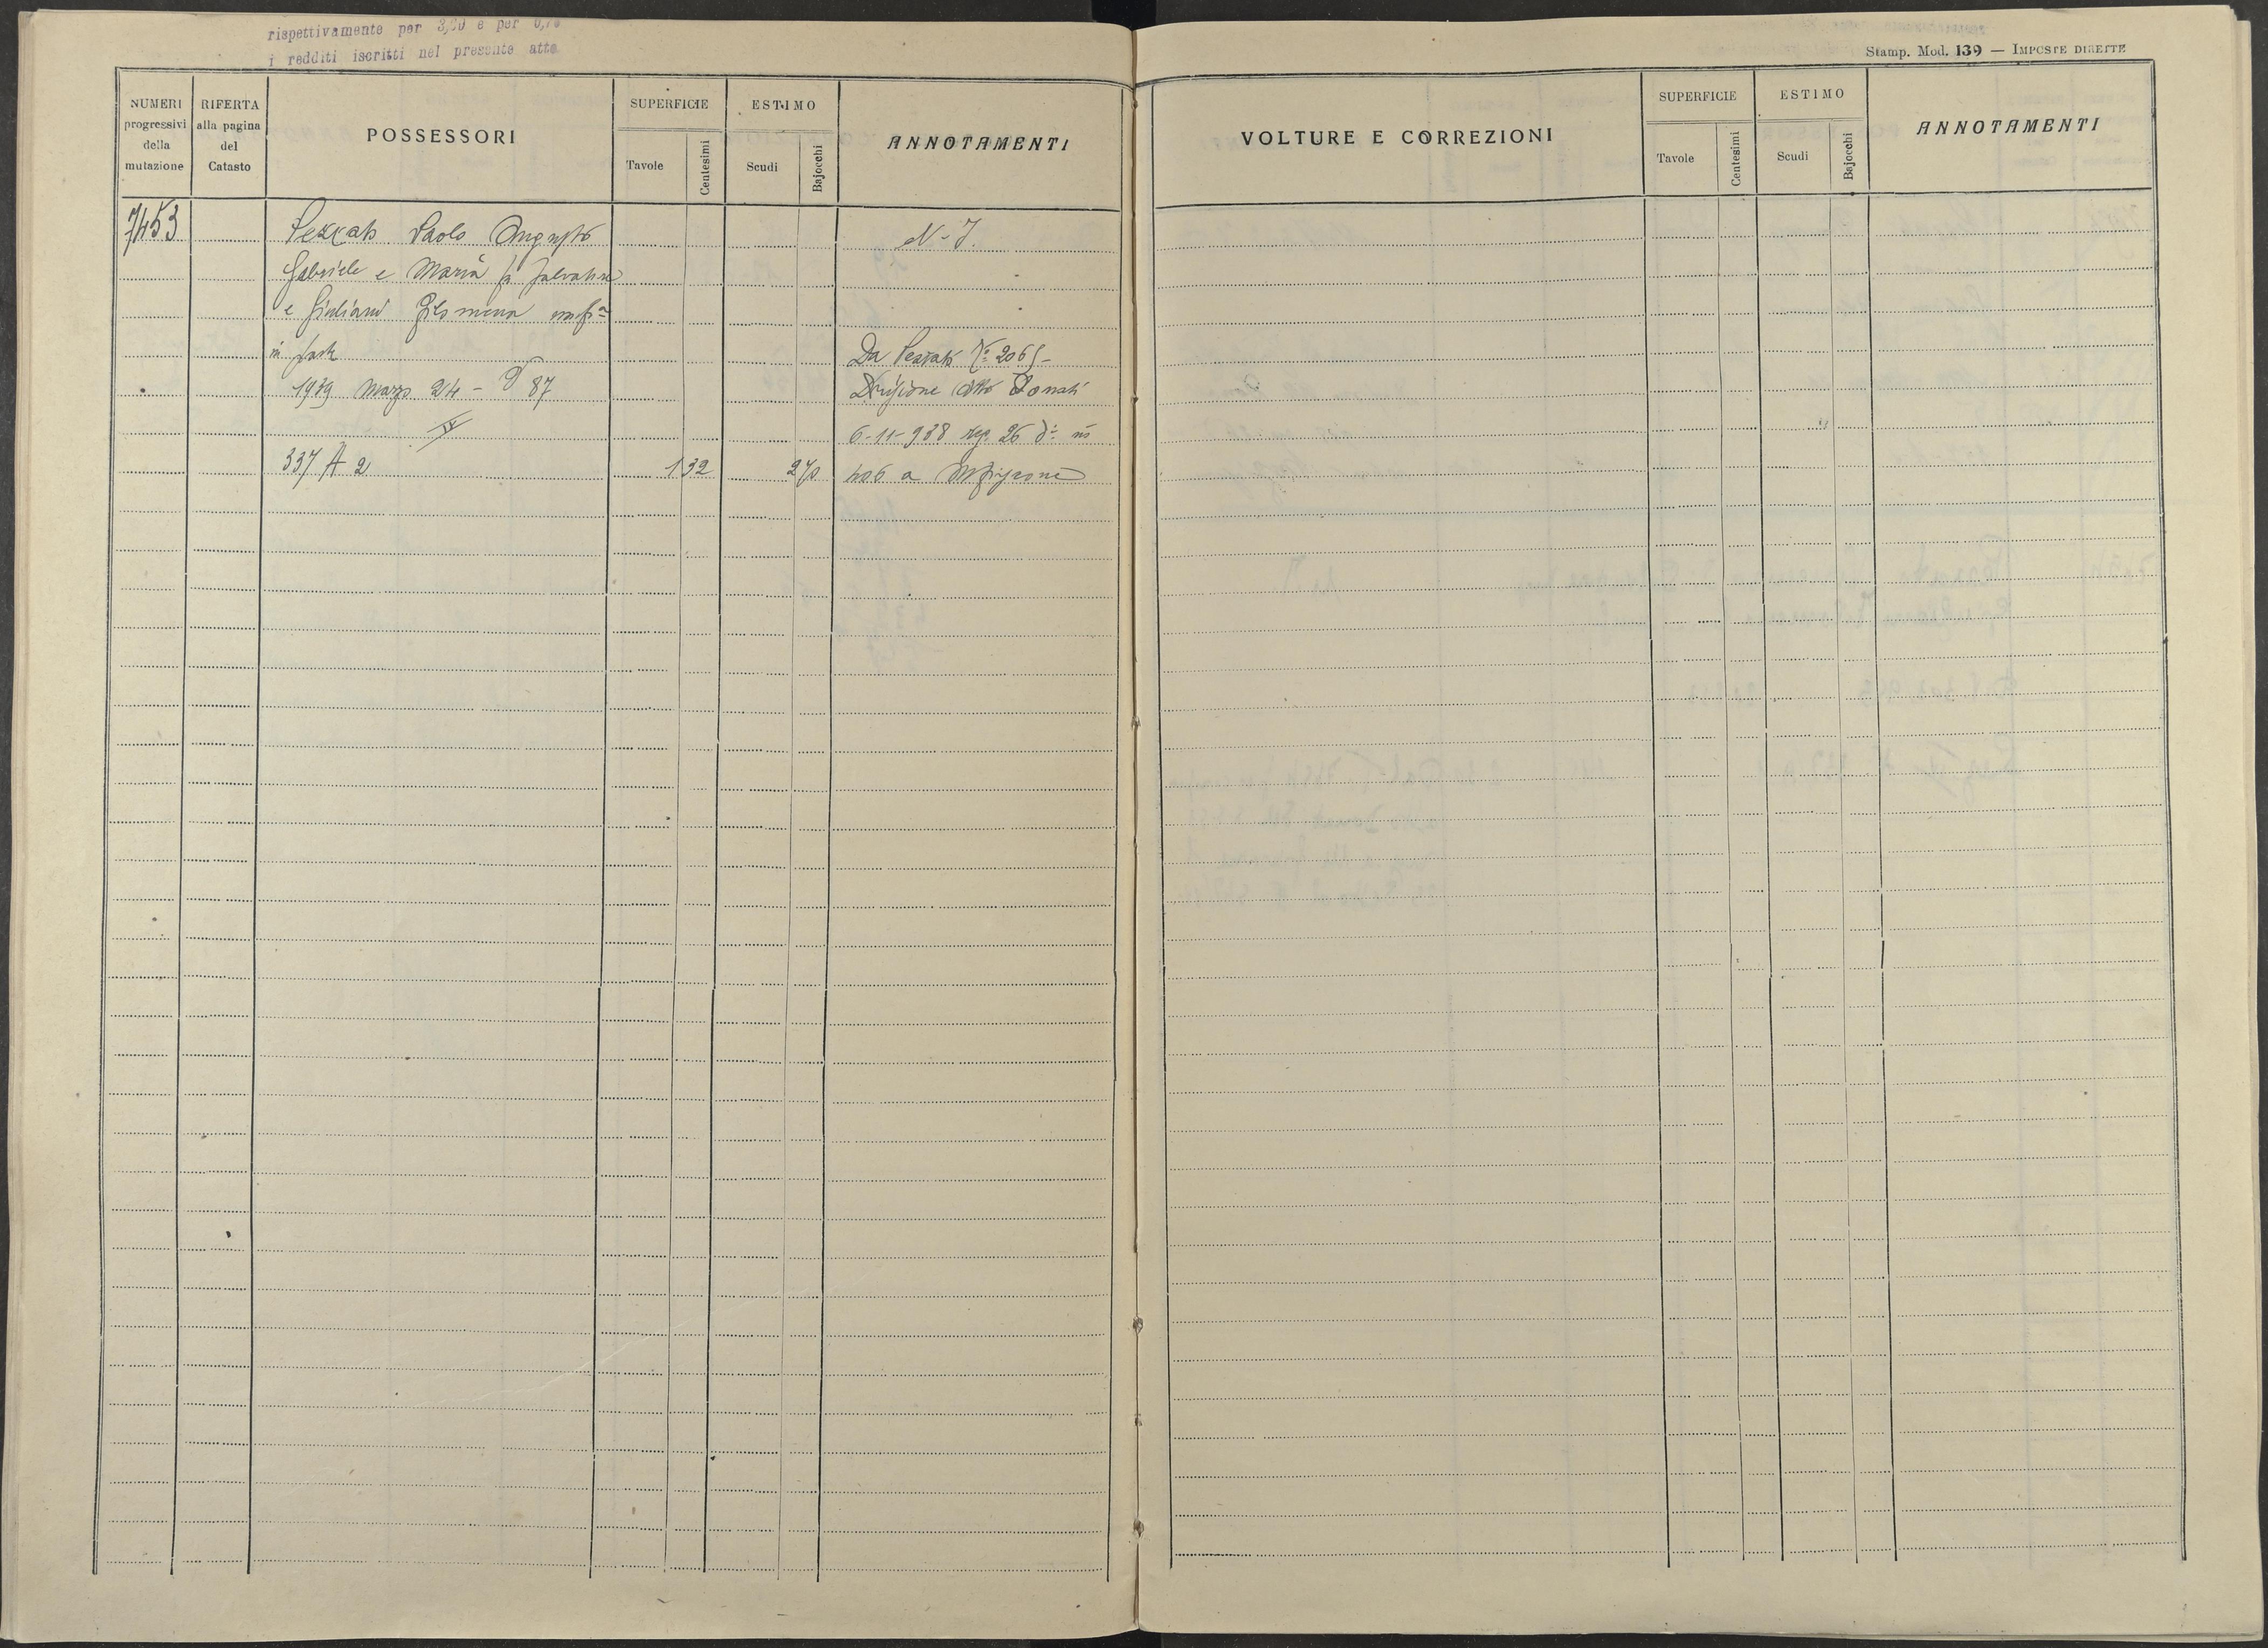 rispettivamente per 3,20 e per 0,70
i redditi iscritti nel presente atto
NUMERI progressivi della mutazione
RIFERTA alla pagina del Catasto
POSSESSORI
SUPERFICIE
Tavole
Centesimi
ESTIMO
Scudi
Bajocchi
ANNOTAMENTI
7453
Paolo Augusto
N-I.
Gabriele e Maria fu Salvatore
e Giuliani Filomena
in parte
Da N.º 2065-
1939 Marzo 24 - 87
Divisione atto Donati
6-11-938 reg. 26 d.º nº
337 A 2
1 32
2 70
406 a
Stamp. Mod. 139 — IMPOSTE DIRETTE
VOLTURE E CORREZIONI
SUPERFICIE
Tavole
Centesimi
ESTIMO
Scudi
Bajocchi
ANNOTAMENTI